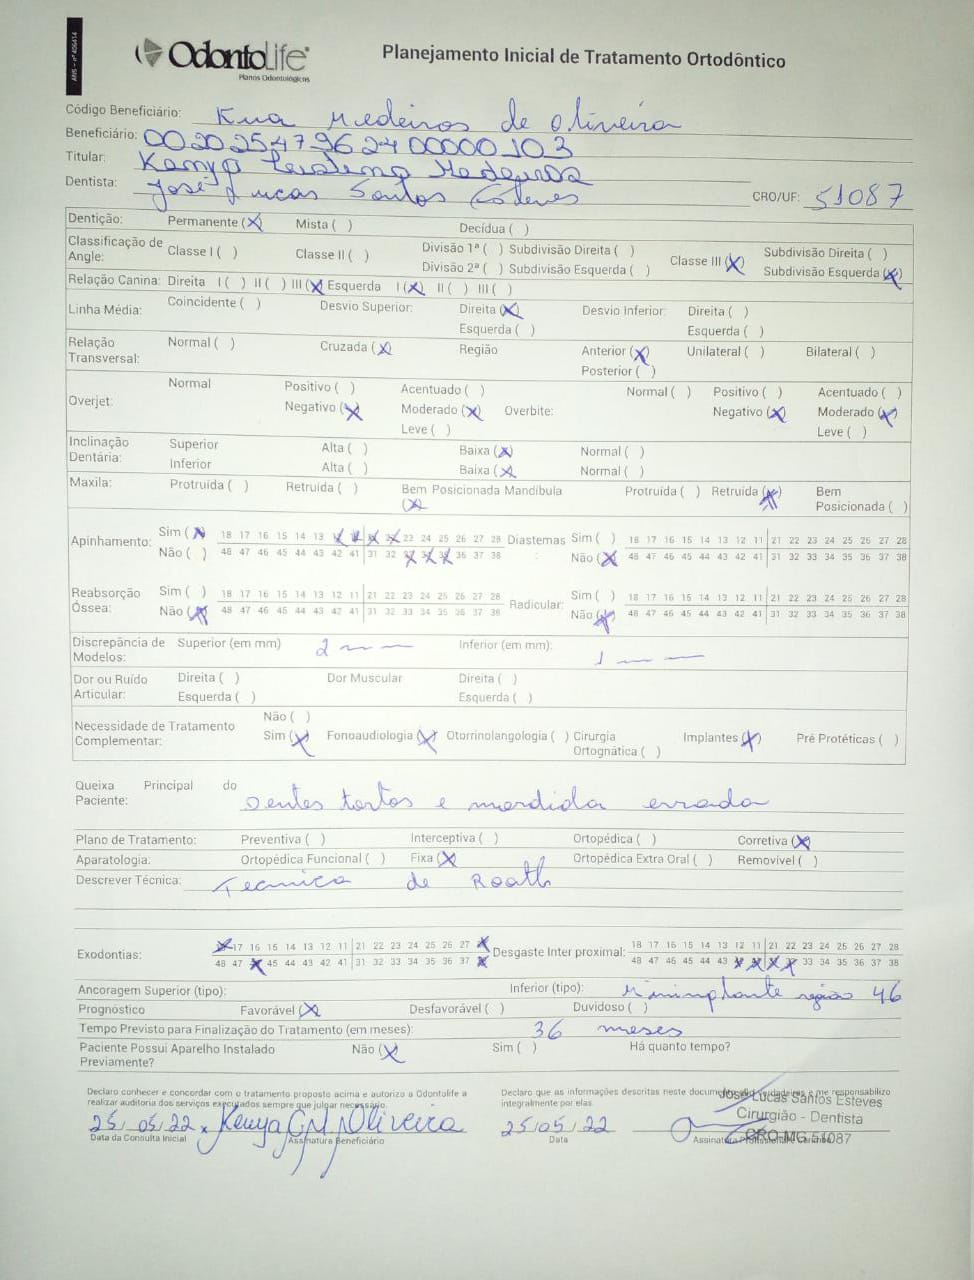 ANS - nº 406414
OdontoLife®
Planos Odontológicos
Planejamento Inicial de Tratamento Ortodôntico
Código Beneficiário: Kua Medeiros de Oliveira
Beneficiário: 00202547962400000103
Titular: Kenya Medeiros
Dentista: José Lucas Santos Esteves CRO/UF: 51087
Dentição: Permanente (X) Mista ( ) Decídua ( )
Classificação de Angle: Classe I ( ) Classe II ( ) Divisão 1ª ( ) Subdivisão Direita ( ) Divisão 2ª ( ) Subdivisão Esquerda ( ) Classe III (X) Subdivisão Direita ( ) Subdivisão Esquerda (X)
Relação Canina: Direita I ( ) II ( ) III (X) Esquerda I (X) II ( ) III ( )
Linha Média: Coincidente ( ) Desvio Superior: Direita (X) Esquerda ( ) Desvio Inferior: Direita ( ) Esquerda ( )
Relação Transversal: Normal ( ) Cruzada (X) Região Anterior (X) Posterior ( ) Unilateral ( ) Bilateral ( )
Overjet: Normal Positivo ( ) Negativo (X) Acentuado ( ) Moderado (X) Leve ( ) Overbite: Normal ( ) Positivo ( ) Negativo (X) Acentuado ( ) Moderado (X) Leve ( )
Inclinação Dentária: Superior Alta ( ) Baixa (X) Normal ( )
Inferior Alta ( ) Baixa (X) Normal ( )
Maxila: Protruída ( ) Retruída ( ) Bem Posicionada (X) Mandíbula Protruída ( ) Retruída (X) Bem Posicionada ( )
Apinhamento: Sim (X) 18 17 16 15 14 13 23 24 25 26 27 28 Diastemas: Sim ( ) 18 17 16 15 14 13 12 11 21 22 23 24 25 26 27 28
Não ( ) 48 47 46 45 44 43 42 41 31 32 36 37 38 Não (X) 48 47 46 45 44 43 42 41 31 32 33 34 35 36 37 38
Reabsorção Óssea: Sim ( ) 18 17 16 15 14 13 12 11 21 22 23 24 25 26 27 28 Radicular: Sim ( ) 18 17 16 15 14 13 12 11 21 22 23 24 25 26 27 28
Não (X) 48 47 46 45 44 43 42 41 31 32 33 34 35 36 37 38 Não (X) 48 47 46 45 44 43 42 41 31 32 33 34 35 36 37 38
Discrepância de Modelos: Superior (em mm) 2 mm Inferior (em mm): 1 mm
Dor ou Ruído Articular: Direita ( ) Esquerda ( ) Dor Muscular Direita ( ) Esquerda ( )
Necessidade de Tratamento Complementar: Não ( ) Sim (X) Fonoaudiologia (X) Otorrinolangologia ( ) Cirurgia Ortognática ( ) Implantes (X) Pré Protéticas ( )
Queixa Principal do Paciente: Dentes tortos e mordida errada
Plano de Tratamento: Preventiva ( ) Interceptiva ( ) Ortopédica ( ) Corretiva (X)
Aparatologia: Ortopédica Funcional ( ) Fixa (X) Ortopédica Extra Oral ( ) Removível ( )
Descrever Técnica: Tecnica de Roath
Exodontias: 17 16 15 14 13 12 11 21 22 23 24 25 26 27 Desgaste Inter proximal: 18 17 16 15 14 13 12 11 21 22 23 24 25 26 27 28
48 47 45 44 43 42 41 31 32 33 34 35 36 37 48 47 46 45 44 43 33 34 35 36 37 38
Ancoragem Superior (tipo): Inferior (tipo): Miniimplante região 46
Prognóstico Favorável (X) Desfavorável ( ) Duvidoso ( )
Tempo Previsto para Finalização do Tratamento (em meses): 36 meses
Paciente Possui Aparelho Instalado Previamente? Não (X) Sim ( ) Há quanto tempo?
Declaro conhecer e concordar com o tratamento proposto acima e autorizo a Odontolife a realizar auditoria dos serviços executados sempre que julgar necessário.
Declaro que as informações descritas neste documento são verdadeiras e me responsabilizo integralmente por elas.
25/05/22 x Kenya G M Oliveira
Data da Consulta Inicial Assinatura Beneficiário
25/05/22
Data
José Lucas Santos Esteves
Cirurgião - Dentista
CRO-MG 51087
Assinatura Profissional e Carimbo